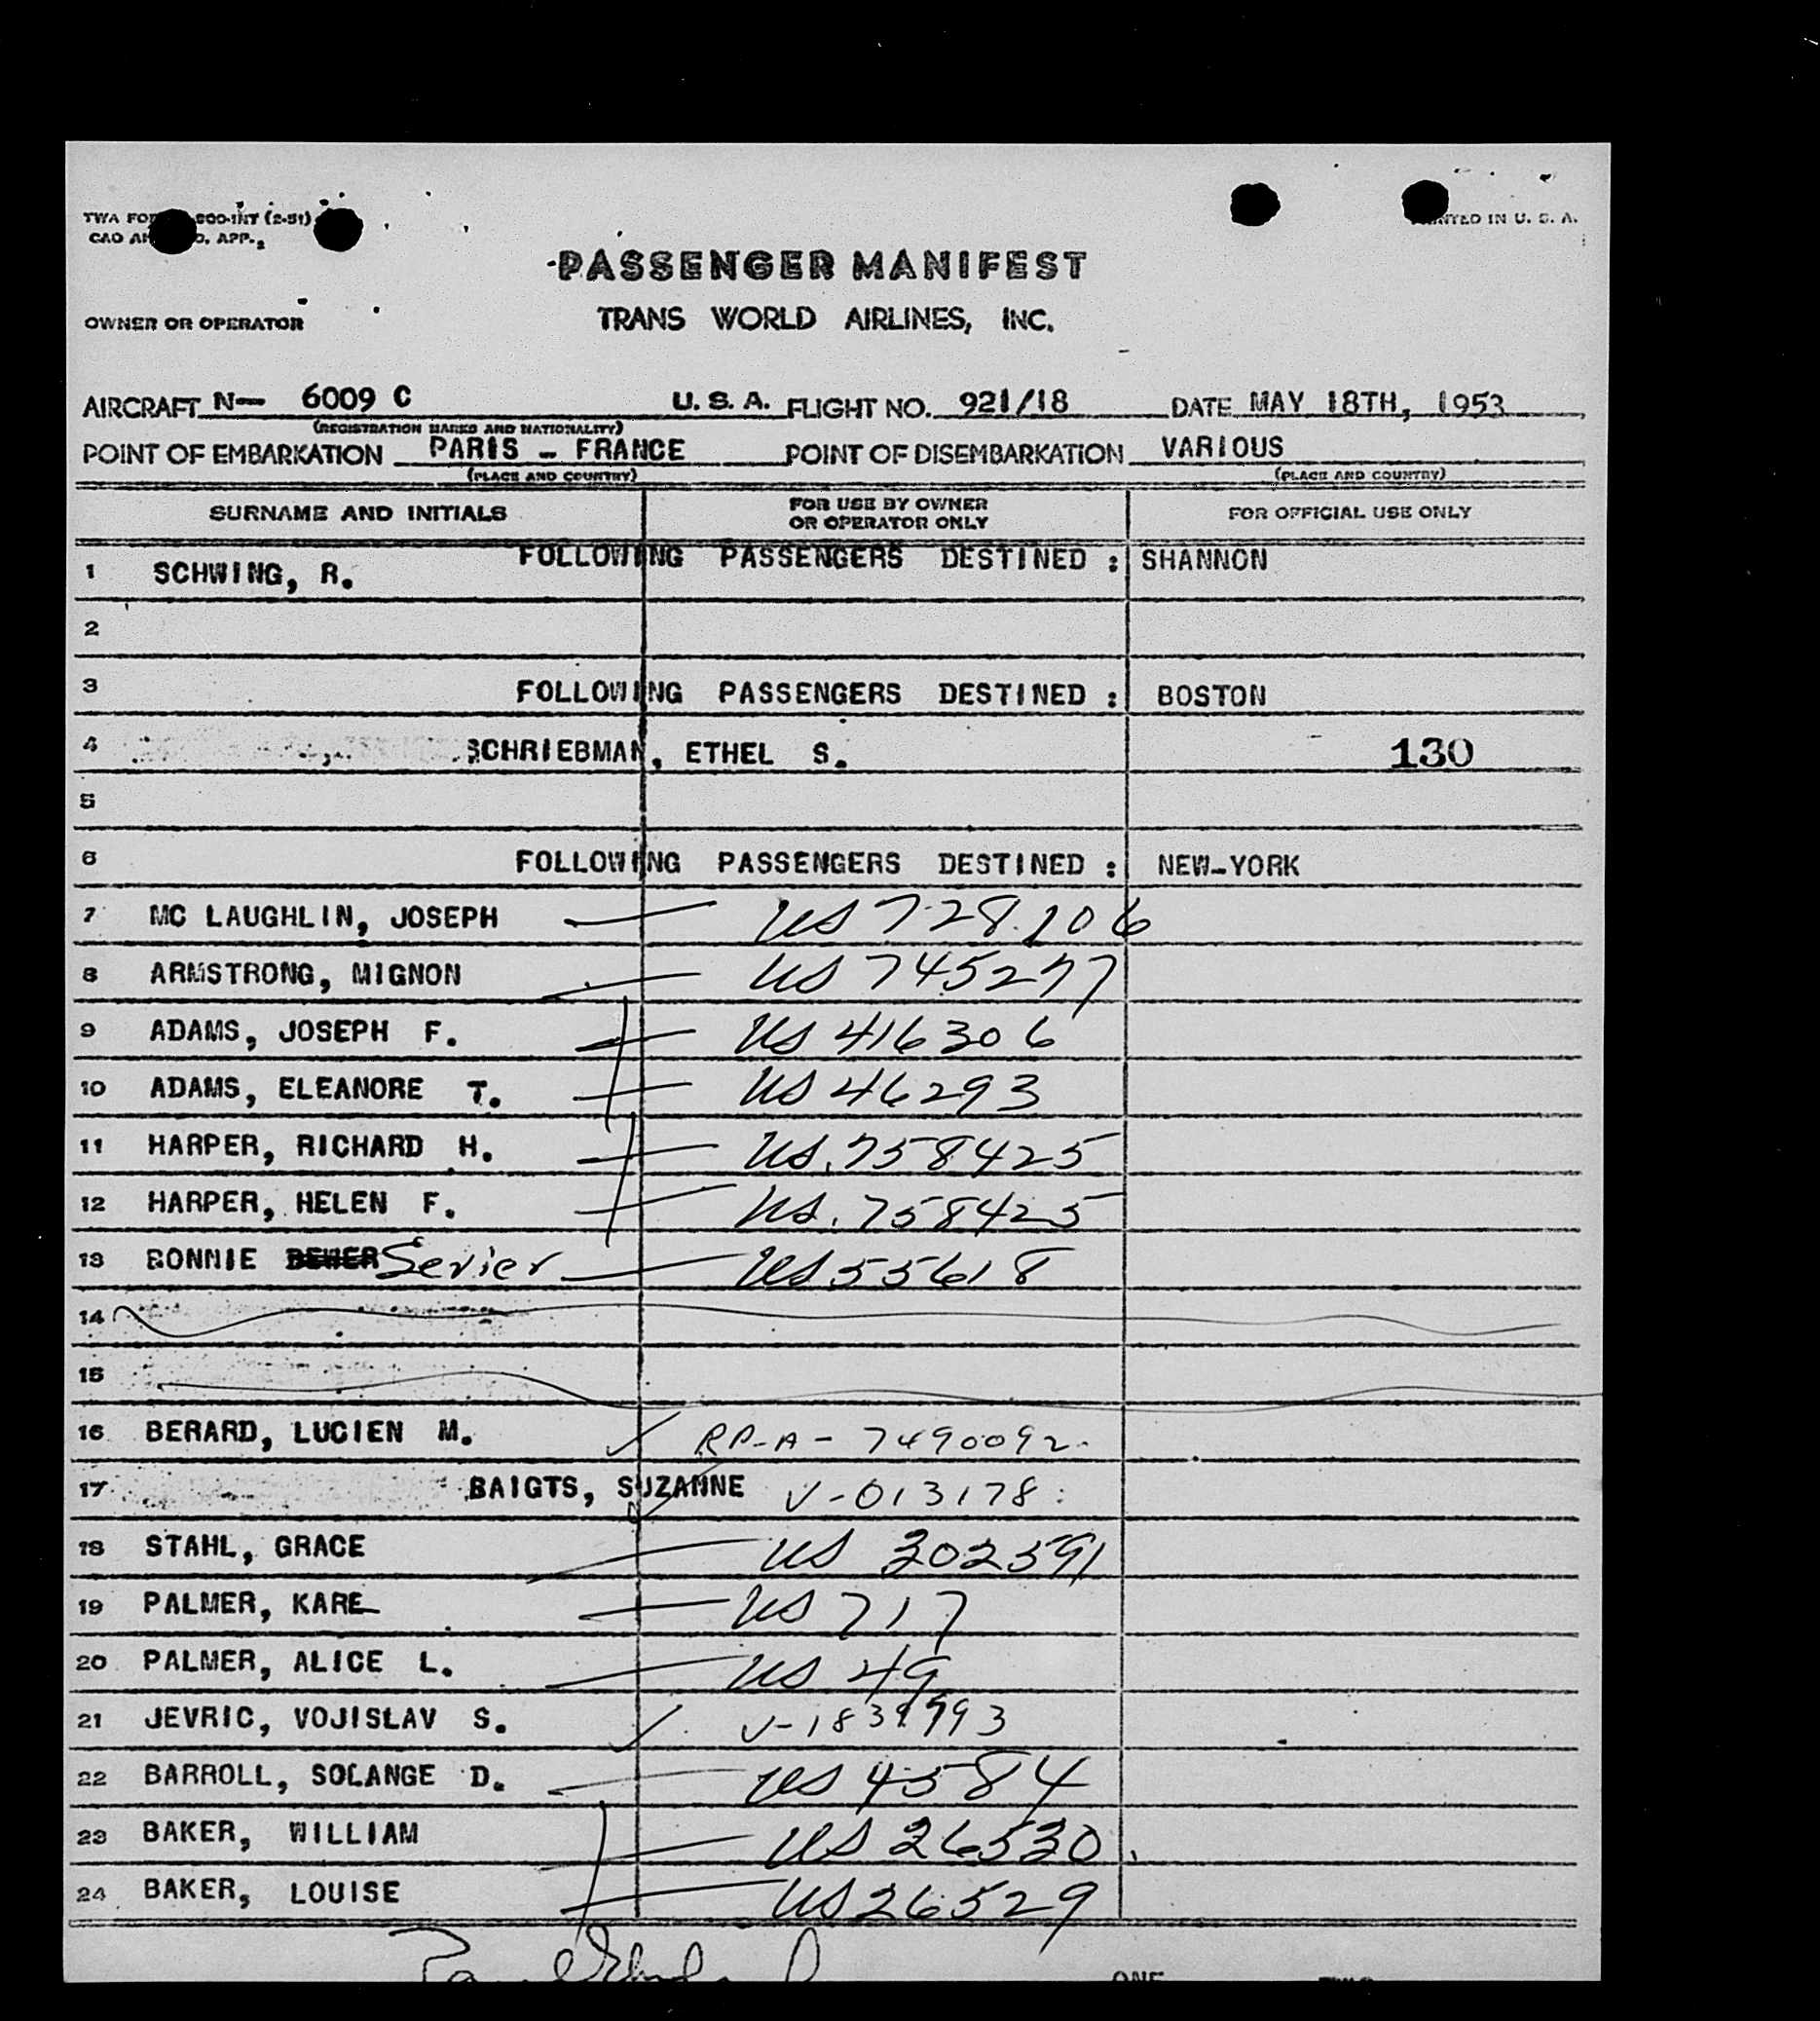 (2-51)
APP.
U. S. A.
PASSENGER MANIFEST
OWNER OR OPERATOR
TRANS WORLD AIRLINES, INC.
AIRCRAFT N— 6009 C U. S. A. FLIGHT NO. 921/18 DATE MAY 18TH, 1953
(REGISTRATION MARKS AND NATIONALITY)
POINT OF EMBARKATION PARIS - FRANCE POINT OF DISEMBARKATION VARIOUS
(PLACE AND COUNTRY) (PLACE AND COUNTRY)
SURNAME AND INITIALS FOR USE BY OWNER OR OPERATOR ONLY FOR OFFICIAL USE ONLY
FOLLOWING PASSENGERS DESTINED : SHANNON
1 SCHWING, R.
2
3 FOLLOWING PASSENGERS DESTINED : BOSTON
4 SCHRIEBMAN, ETHEL S. 130
5
6 FOLLOWING PASSENGERS DESTINED : NEW-YORK
7 MC LAUGHLIN, JOSEPH US 728106
8 ARMSTRONG, MIGNON US 745277
9 ADAMS, JOSEPH F. US 416306
10 ADAMS, ELEANORE T. US 46293
11 HARPER, RICHARD H. US. 758425
12 HARPER, HELEN F. US. 758425
13 BONNIE Sevier US 55618
14
15
16 BERARD, LUCIEN M. RP-A-7490092
17 BAIGTS, SUZANNE V-013178
18 STAHL, GRACE US 302591
19 PALMER, KARE US 717
20 PALMER, ALICE L. US 49
21 JEVRIC, VOJISLAV S.
22 BARROLL, SOLANGE D. US 4584
23 BAKER, WILLIAM US 26530
24 BAKER, LOUISE US 26529